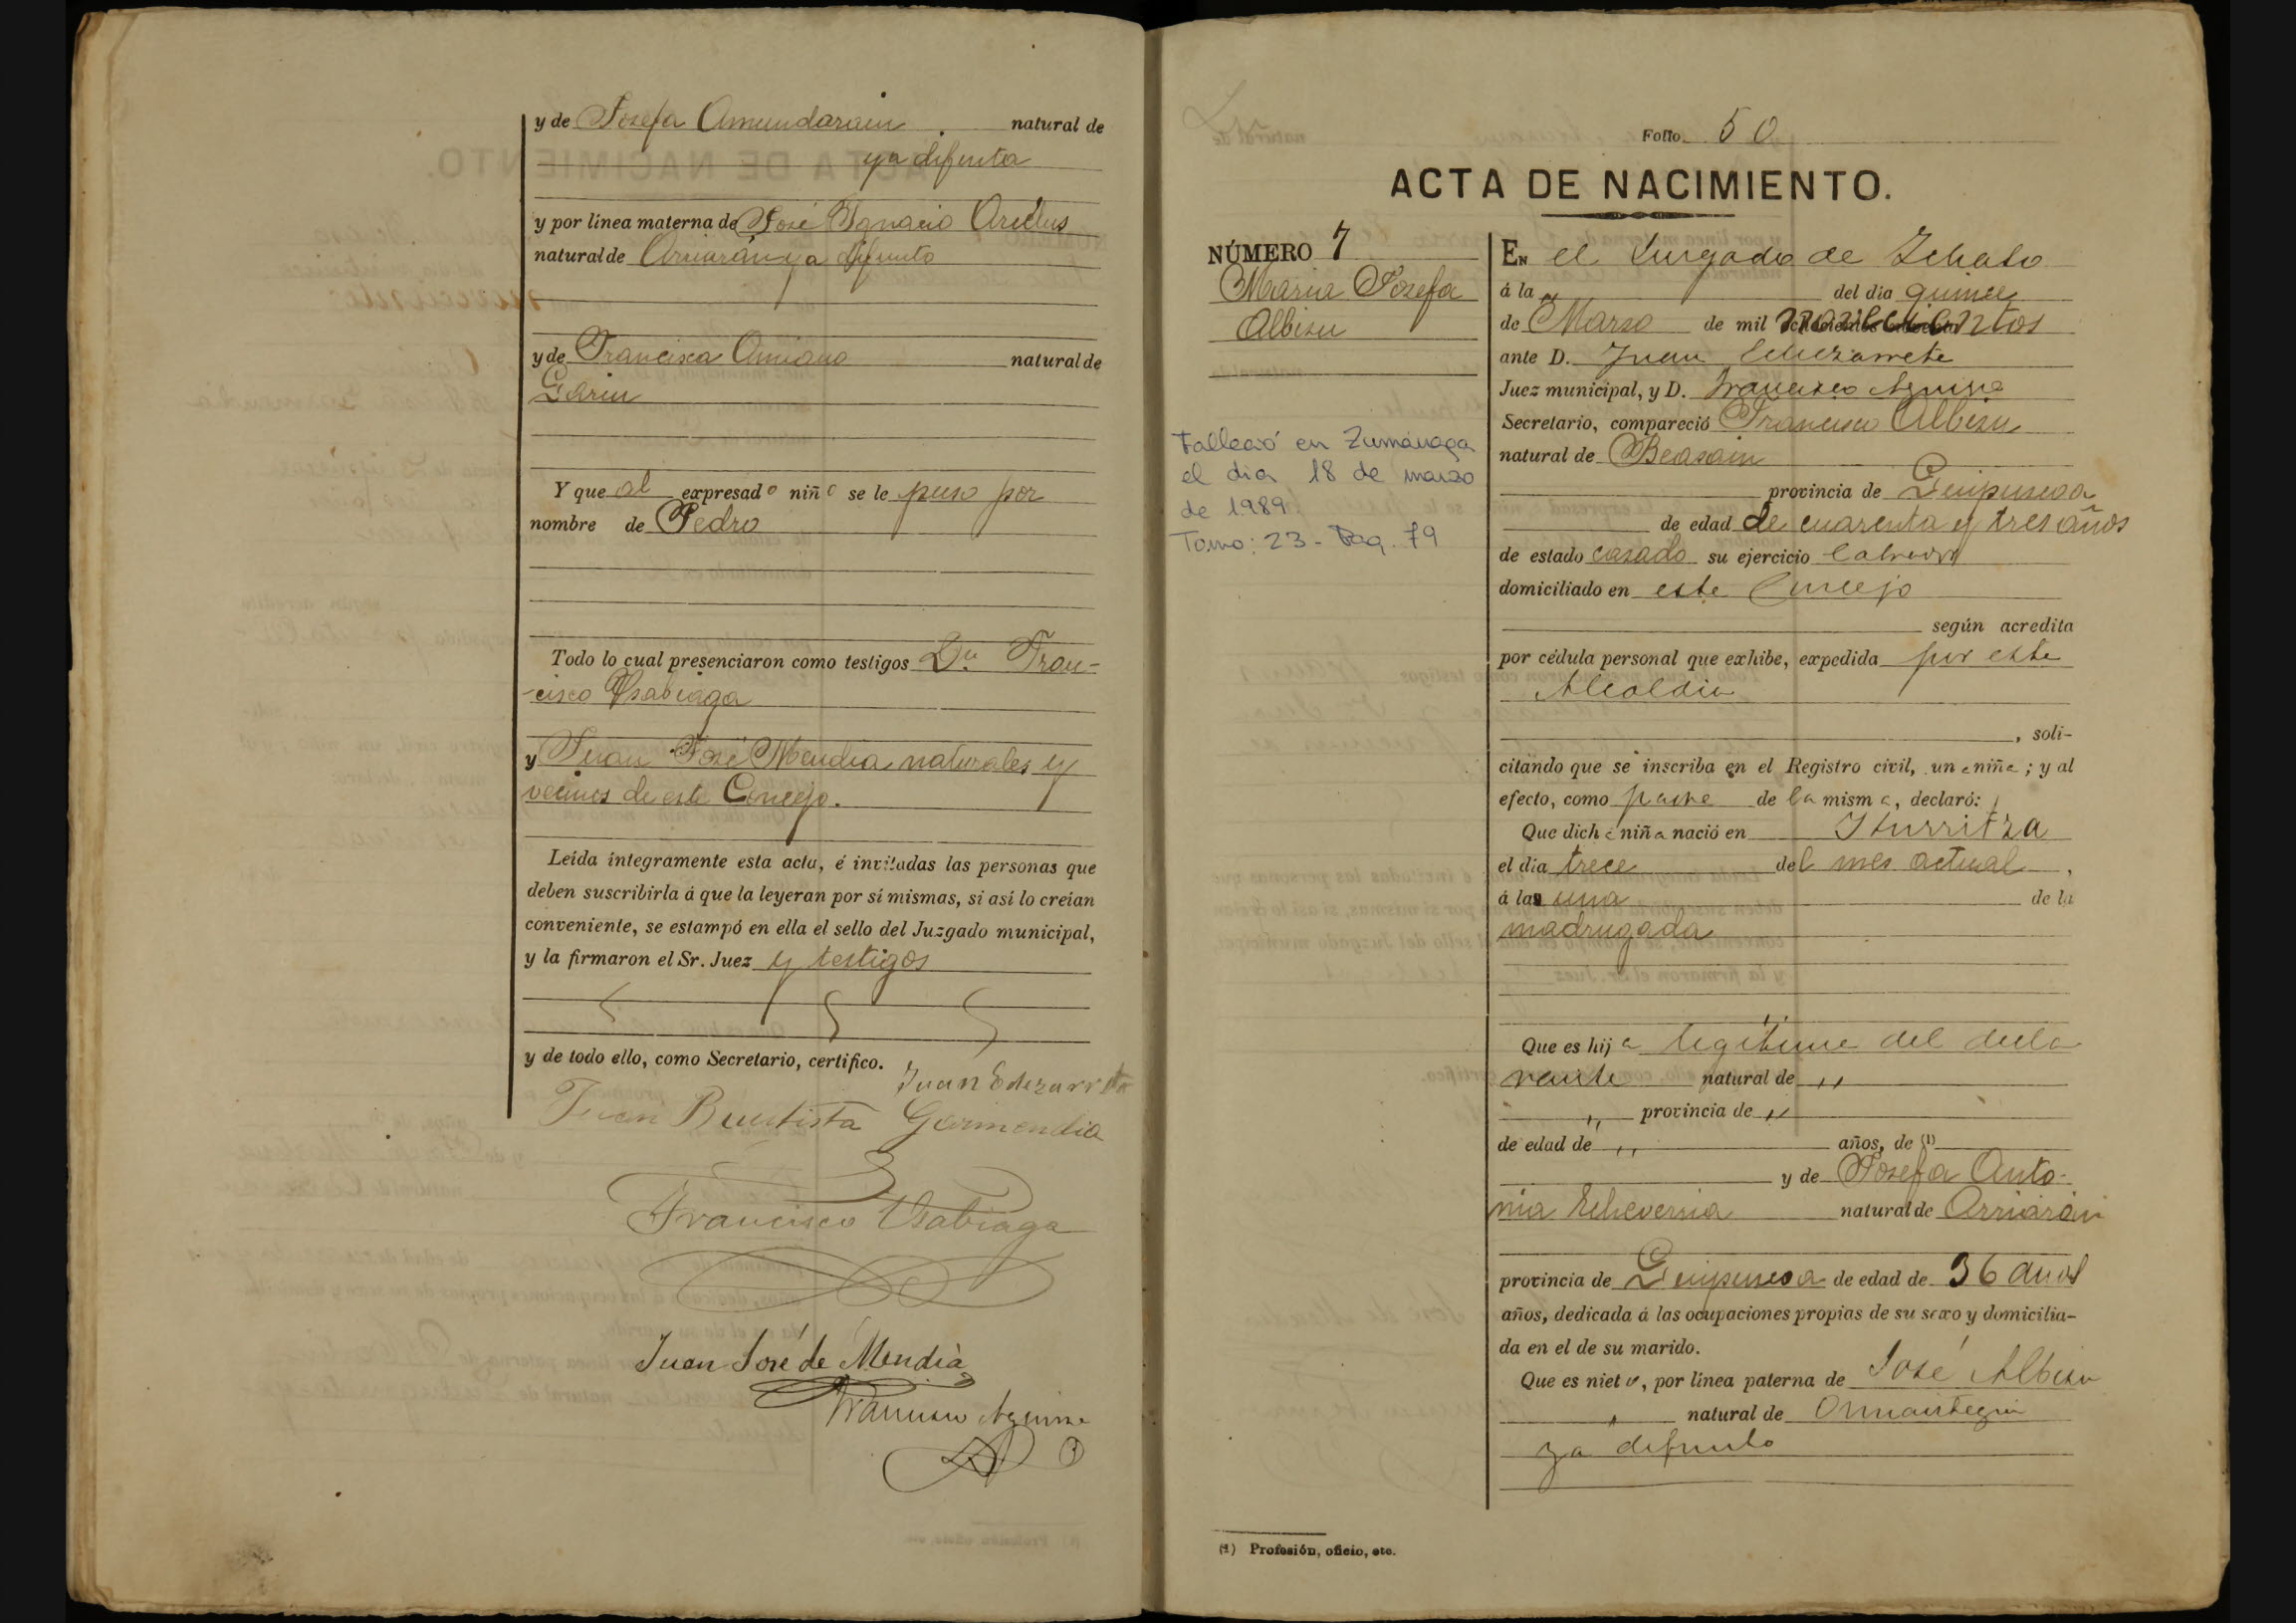 y de Josefa Amundarain . natural de
ya difunta
y por línea materna de José Ignacio
natural de Arriarán ya difunto
y de Francisca Amiano natural de
Garin
Y que al expresado niño se le puso por
nombre de Pedro
Todo lo cual presenciaron como testigos Dn Fran-
-cisco Usabiaga
y Juan José Mendia naturales y
vecinos de este Concejo.
Leída íntegramente esta acta, é invitadas las personas que
deben suscribirla á que la leyeran por sí mismas, si así lo creían
conveniente, se estampó en ella el sello del Juzgado municipal,
y la firmaron el Sr. Juez y testigos
y de todo ello, como Secretario, certifico.
Juan Echezarreta
Juan Bautista Garmendia
Francisco Usabiaga
Juan José de Mendia
Francisco Aguirre
Folio 50
ACTA DE NACIMIENTO.
NÚMERO 7
Maria Josefa
Albisu
Falleció en Zumárraga
el dia 18 de marzo
de 1989
Tomo: 23 - Pag. 79
EN el Jurgado de Ichaso
á la " del día quince
de Marzo de mil novecientos
ante D. Juan Echezarreta
Juez municipal, y D. Francisco Aguirre
Secretario, compareció Francisco Albisu
natural de Beasain
provincia de Guipuscoa
de edad de cuarenta y tres años
de estado casado su ejercicio labrador
domiciliado en este Concejo
según acredita
por cédula personal que exhibe, expedida por esta
Alcaldia
, soli-
citando que se inscriba en el Registro civil, una niña; y al
efecto, como padre de la misma, declaró:
Que dicha niña nació en Iturritza
el día trece del mes actual ,
á la una de la
madrugada
Que es hija legitima del decla
rante natural de ,,
,, provincia de ,,
de edad de ,, años, de (1)
y de Josefa Anto-
nia Echeverria natural de Arriarán
provincia de Guipuscoa de edad de 36 años
años, dedicada á las ocupaciones propias de su sexo y domicilia-
da en el de su marido.
Que es nieta, por línea paterna de José Albisu
" natural de Ormaiztegui
ya difunto
(1) Profesión, oficio, etc.